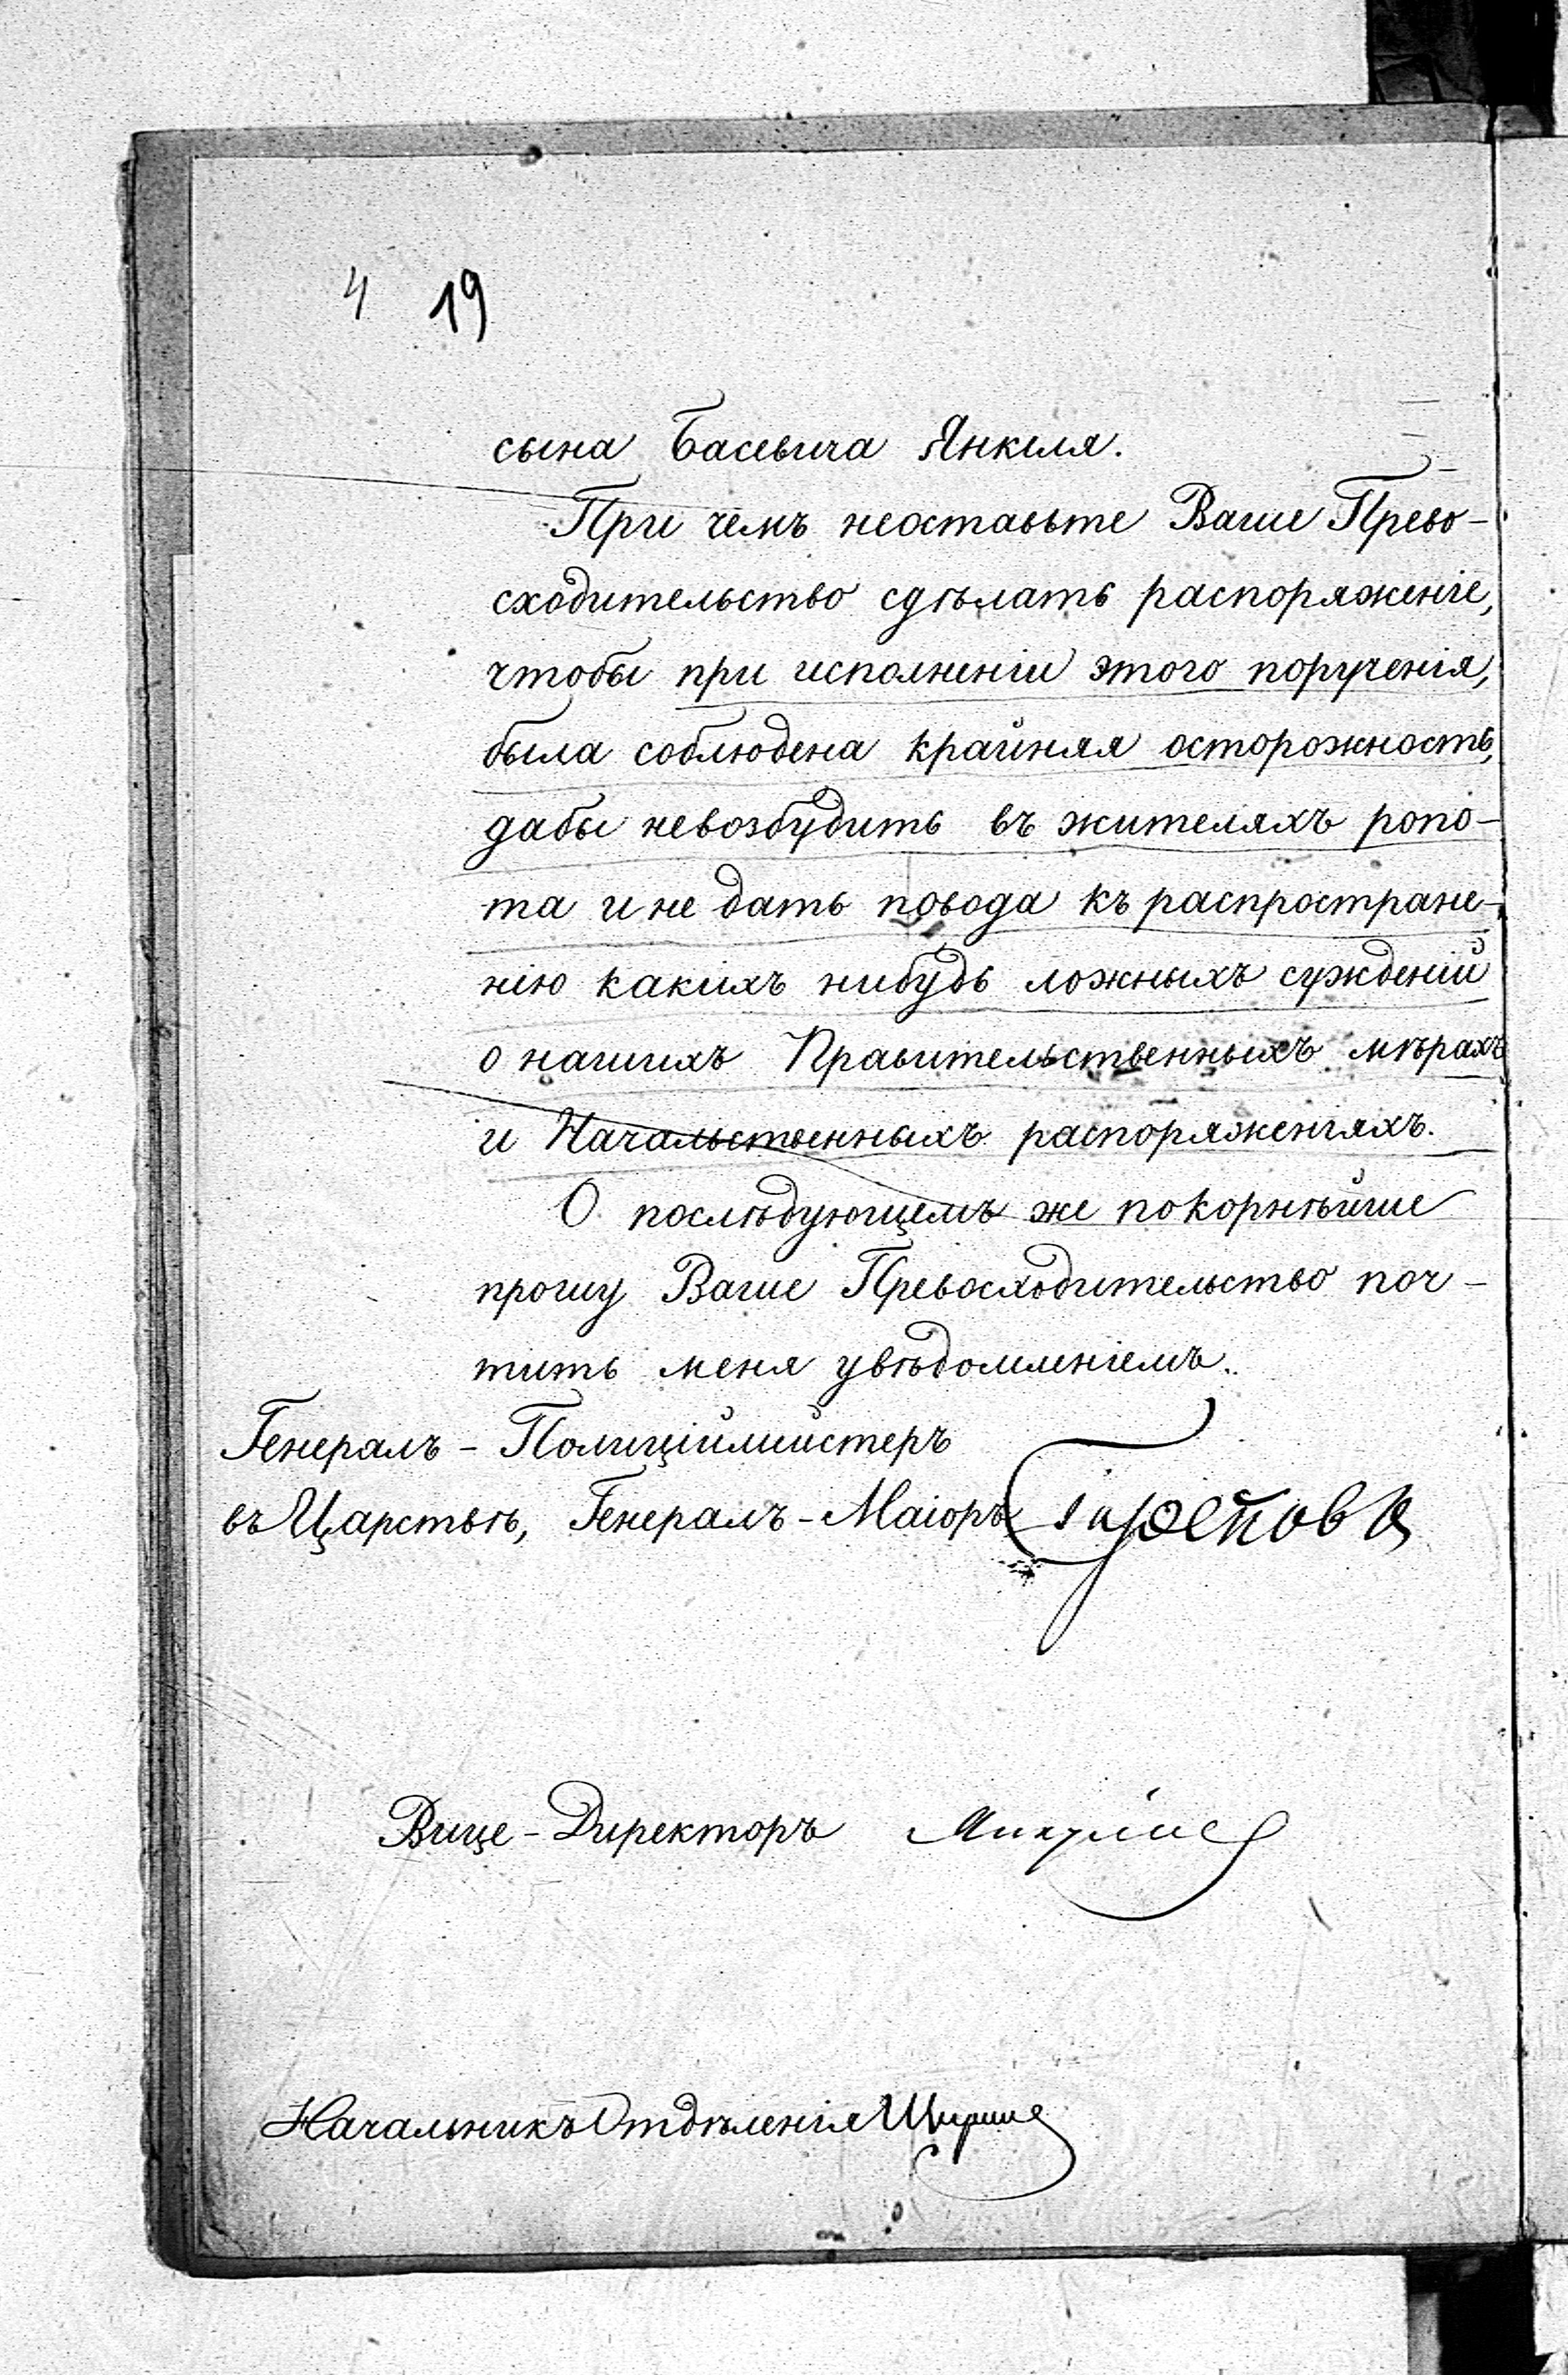 4 19
сына Басевича Янкеля.
При чемъ неоставьте Ваше Прево-
сходительство сдѣлать распоряженіе,
чтобы при исполненіи этого порученія,
была соблюдена крайняя осторожность,
дабы невозбудить въ жителяхъ ропо-
та и не дать повода къ распростране-
нію какихъ нибудь ложныхъ сужденій
о нашихъ Правительственныхъ мѣрахъ
и Начальственныхъ распоряженіяхъ.
О послѣдующемъ же покорнѣйше
прошу Ваше Превосходительство поч-
тить меня увѣдомленіемъ.
Генералъ-Полиціймейстеръ
въ Царствѣ, Генералъ-Маіоръ Треповъ
Вице-Директоръ
Начальникъ Отдѣленія